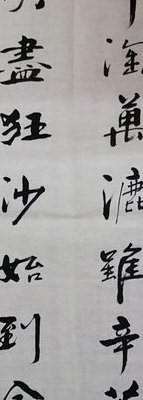 淘萬漉雖辛
盡狂沙始到